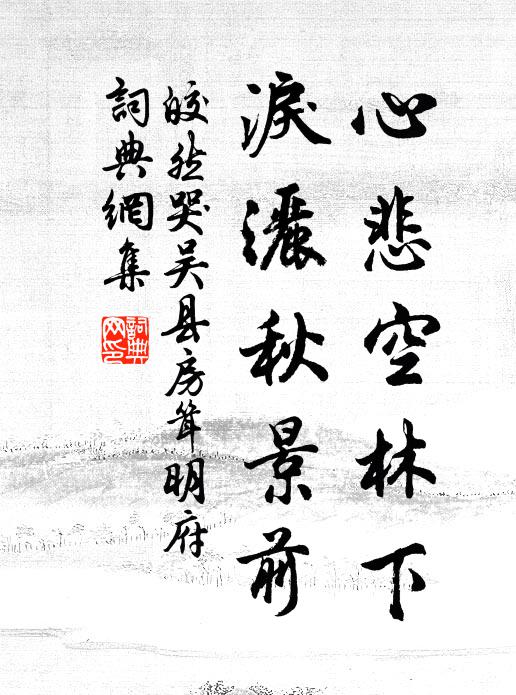 心悲空林下
淚灑秋景前
皎然哭吴县房耸明府
詞典網集
詞典
网印